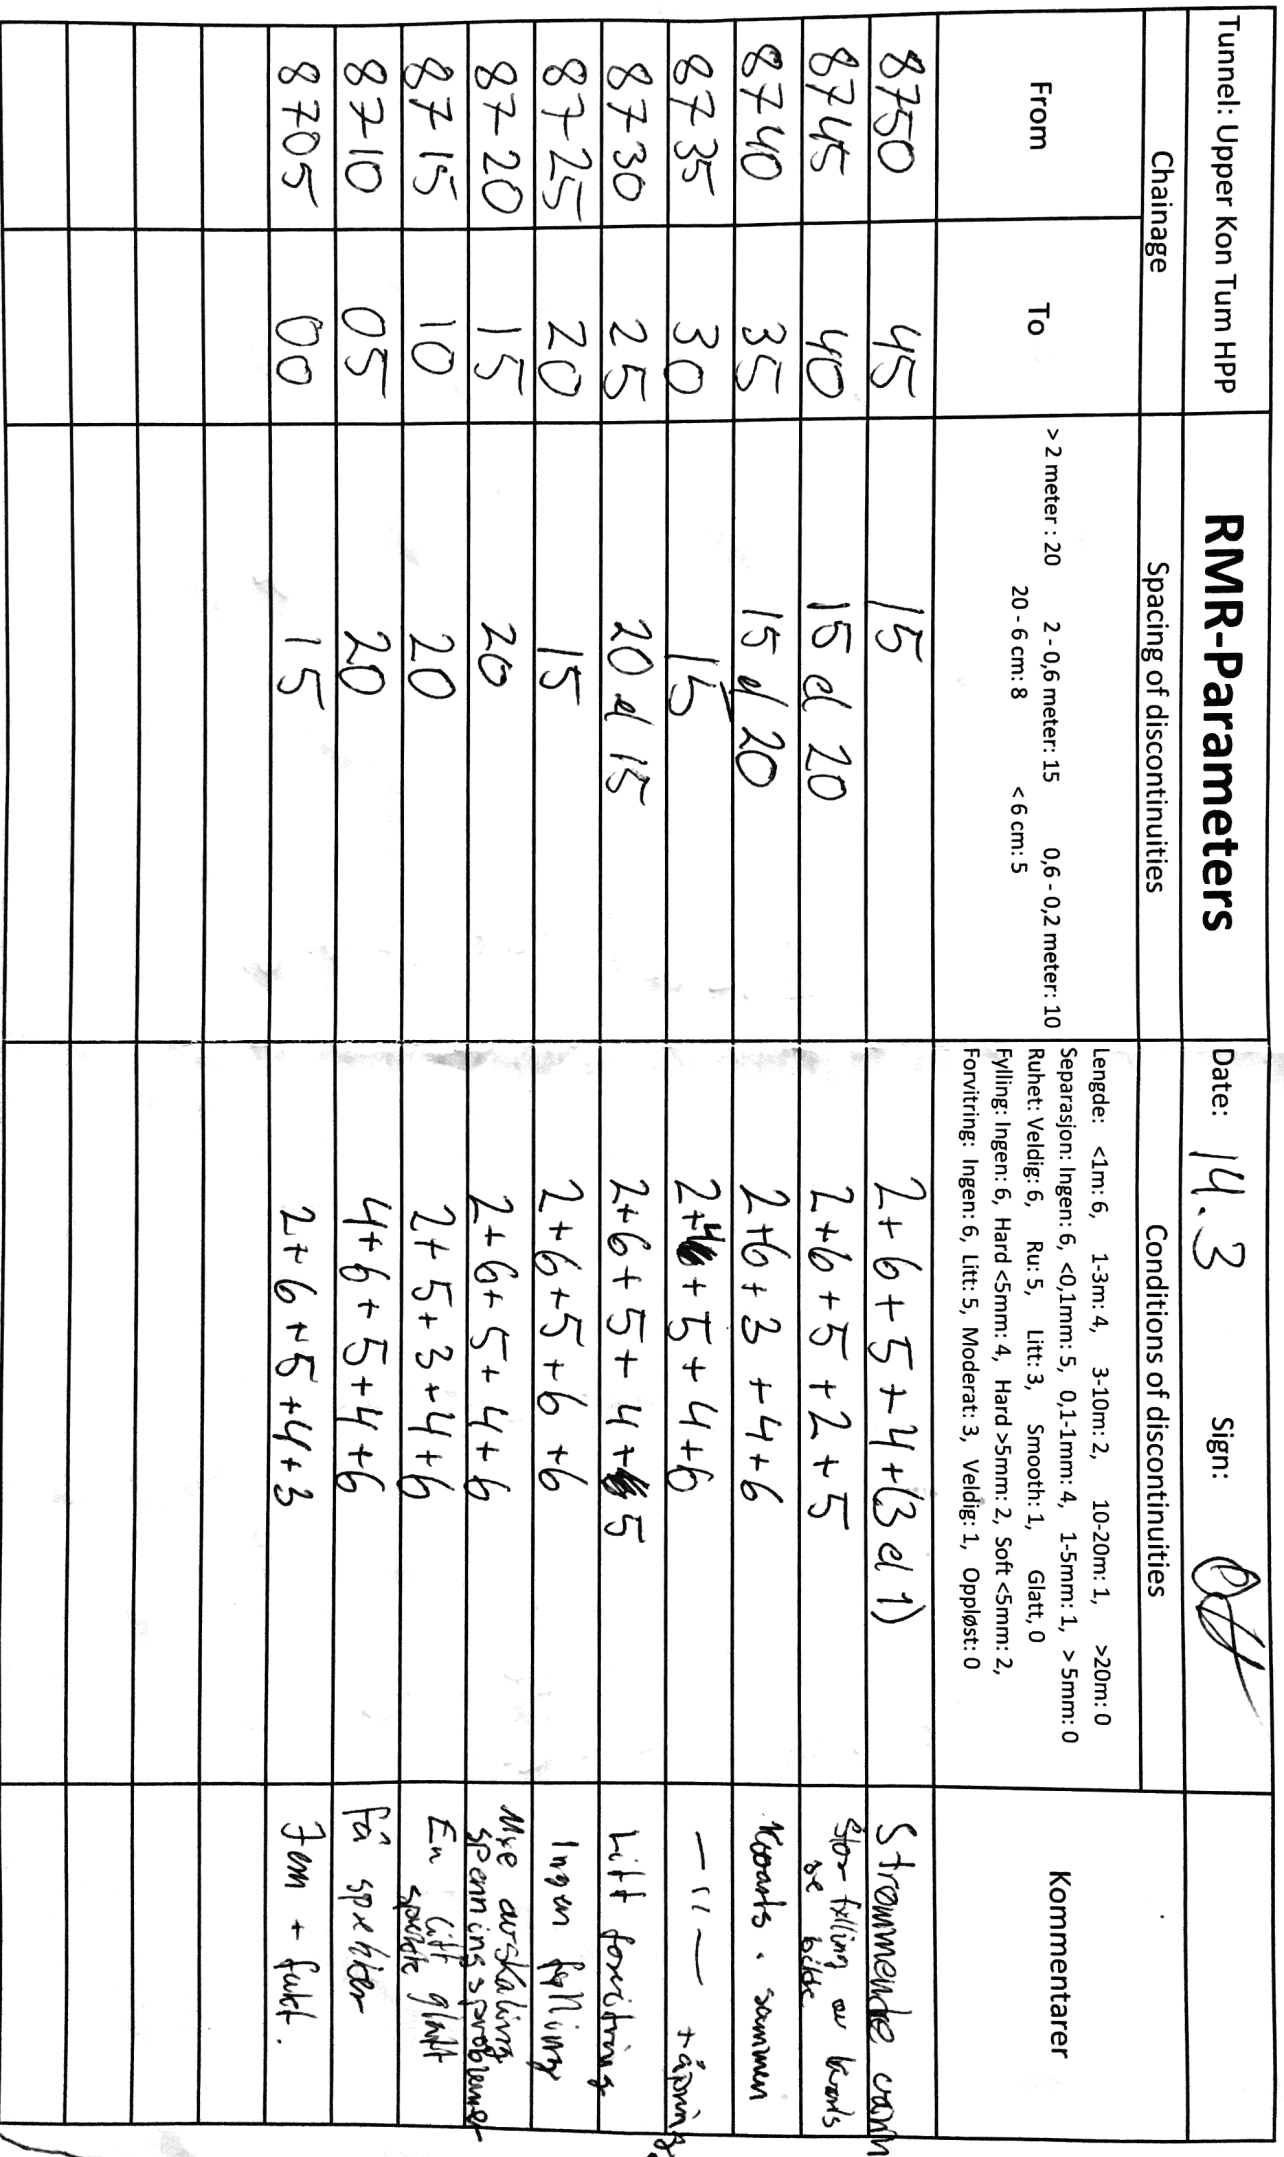 Tunnel: Upper Kon Tum HPP RMR-Parameters Date: 14.3 Sign:
Chainage Spacing of discontinuities Conditions of discontinuities Kommentarer
From To
> 2 meter : 20 2 - 0,6 meter: 15 0,6 - 0,2 meter: 10
20 - 6 cm: 8 < 6 cm: 5
Lengde: <1m: 6, 1-3m: 4, 3-10m: 2, 10-20m: 1, >20m: 0
Separasjon: Ingen: 6, <0,1mm: 5, 0,1-1mm: 4, 1-5mm: 1, > 5mm: 0
Ruhet: Veldig: 6, Ru: 5, Litt: 3, Smooth: 1, Glatt, 0
Fylling: Ingen: 6, Hard <5mm: 4, Hard >5mm: 2, Soft <5mm: 2,
Forvitring: Ingen: 6, Litt: 5, Moderat: 3, Veldig: 1, Oppløst: 0
8750 45 15 2+6+5+4+(3 el 1) Strømmende vann
8745 40 15 el 20 2+6+5+2+5 Stor fylling av kvarts
se bilde.
8740 35 15 el 20 2+6+3+4+6 Kvarts. sammen
8735 30 15 2+4+5+4+6 -11- +åpning
8730 25 20 el 15 2+6+5+4+5 Litt forvitring
8725 20 15 2+6+5+6+6 Ingen fylling
8720 15 20 2+6+5+4+6 Mye avskaling
spenningsproblemer
8715 10 20 2+5+3+4+6 En litt glatt
sprekk
8710 05 20 4+6+5+4+6 Få sprekker
8705 00 15 2+6+5+4+3 Jern + fukt.